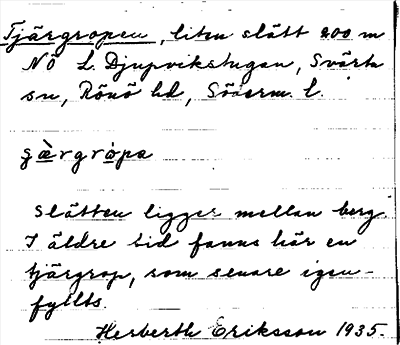 Tjärgropen, liten slätt 200 m
NÖ L. Djupvikstugan, Svärta
sn, Rönö hd, Söderm. l.
Slätten ligger mellan berg.
I äldre tid fanns här en
tjärgrop, som senare igen-
fyllts.
Herberth Eriksson 1935.